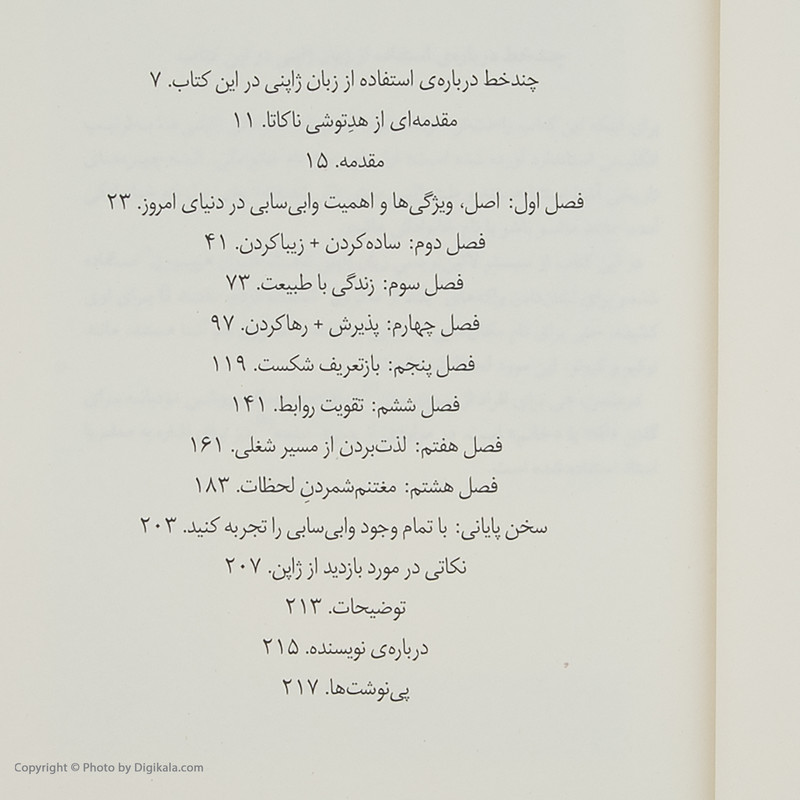 چندخط درباره‌ی استفاده از زبان ژاپنی در این کتاب. ۷
مقدمه‌ای از هدِتوشی ناکاتا. ۱۱
مقدمه. ۱۵
فصل اول: اصل، ویژگی‌ها و اهمیت وابی‌سابی در دنیای امروز. ۲۳
فصل دوم: ساده‌کردن + زیباکردن. ۴۱
فصل سوم: زندگی با طبیعت. ۷۳
فصل چهارم: پذیرش + رهاکردن. ۹۷
فصل پنجم: بازتعریف شکست. ۱۱۹
فصل ششم: تقویت روابط. ۱۴۱
فصل هفتم: لذت‌بردن از مسیر شغلی. ۱۶۱
فصل هشتم: مغتنم‌شمردنِ لحظات. ۱۸۳
سخن پایانی: با تمام وجود وابی‌سابی را تجربه کنید. ۲۰۳
نکاتی در مورد بازدید از ژاپن. ۲۰۷
توضیحات. ۲۱۳
درباره‌ی نویسنده. ۲۱۵
پی‌نوشت‌ها. ۲۱۷
Copyright © Photo by Digikala.com